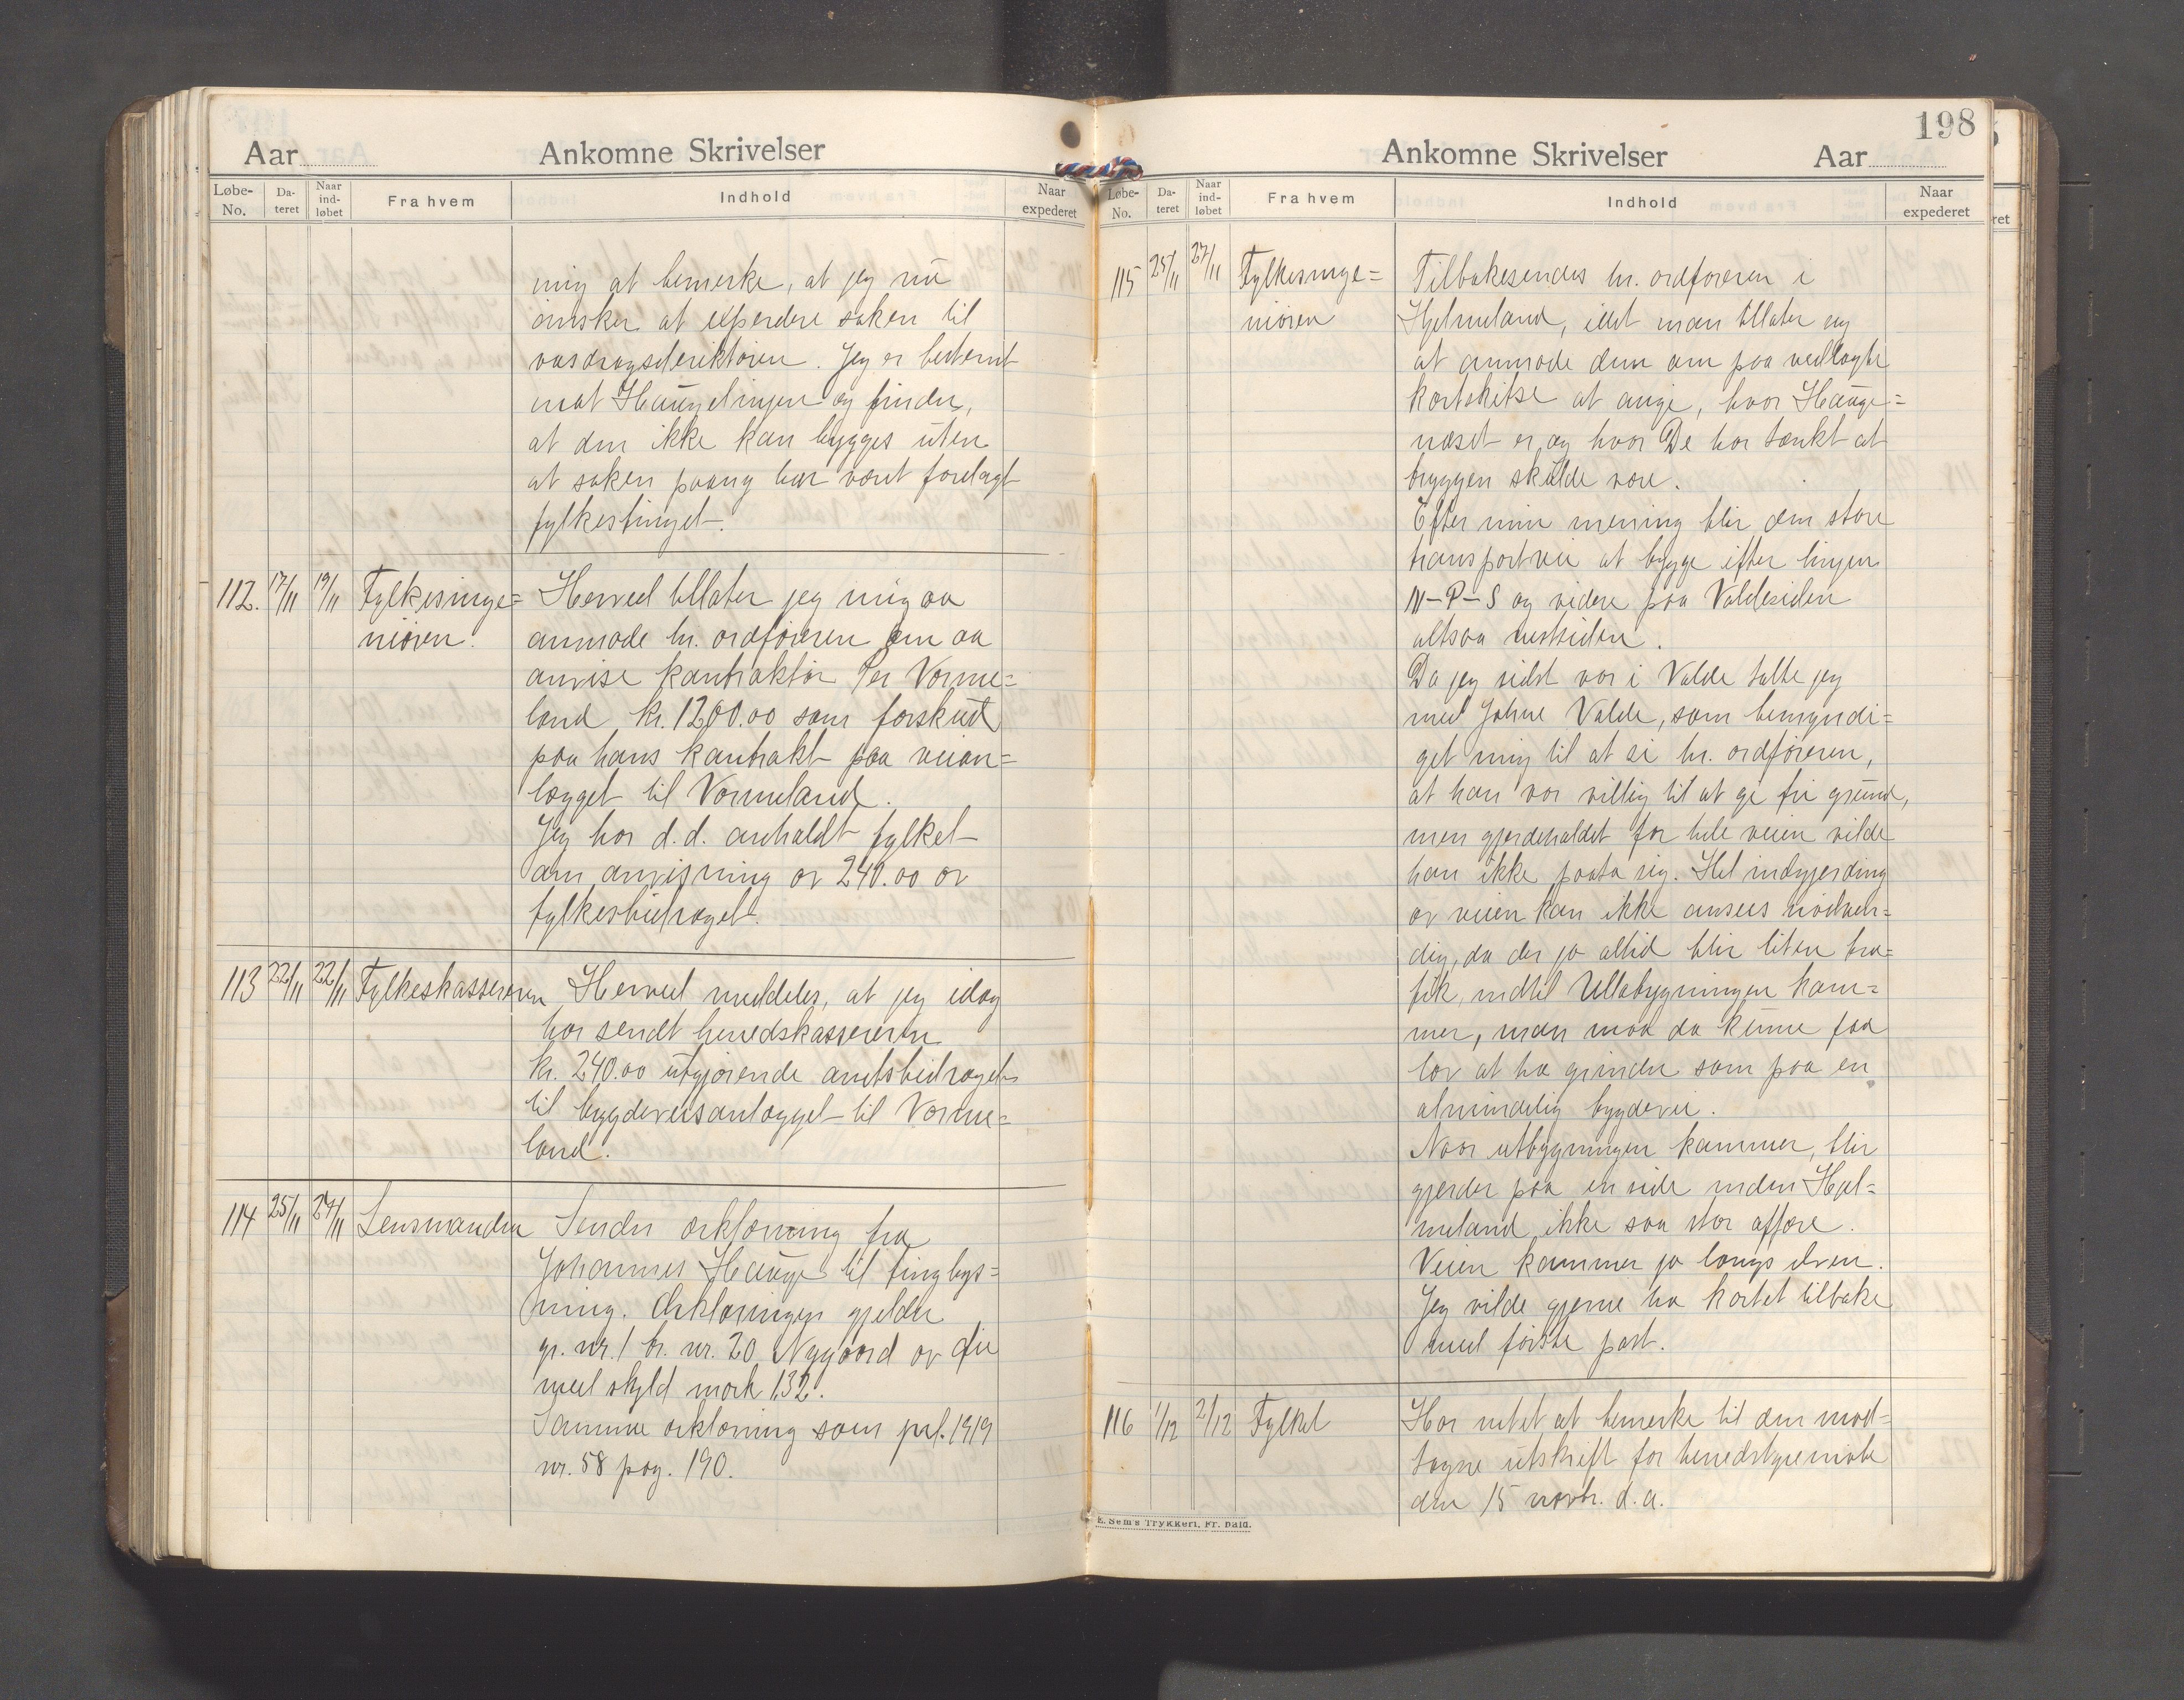 Aar
Ankomne Skrivelser
Løbe-No.
Da-teret
Naar ind-løbet
Fra hvem
Indhold
Naar expederet
mig at bemerke, at jeg nu
ønsker at expedere saken til
vasdragsdirektøren. Jeg er bestemt
mot Haugelinjen og finder,
at den ikke kan bygges uten
at saken paany har været forelagt
fylkestinget.
112. 17/11 19/11 Fylkesinge= Herved tillater jeg mig aa
niøren. anmode hr. ordføreren om aa
anvise kontraktør Per Vorme=
land kr. 1200.00 som forskud
paa hans kontrakt paa veian=
lægget til Vormeland.
Jeg har d.d. anholdt fylket
om anvisning av 240.00 av
fylkesbidraget.
113 22/11 22/11 Fylkeskassereren Herved meddeles, at jeg idag
har sendt herredskassereren
kr. 240.00 utgjørende amtsbidraget
til bygdeveisanlægget til Vorme=
land.
114 25/11 27/11 Lensmanden Sender erklæring fra
Johannes Hauge til tinglys=
ning. Erklæringen gjelder
gr. nr. 1 br. nr. 20 Nygaard av
med skyld mark 1.32.
Samme erklæring som prl. 1919
nr. 58 pag. 190.
198
Ankomne Skrivelser
Aar
Løbe-No.
Da-teret
Naar ind-løbet
Fra hvem
Indhold
Naar expederet
115 25/11 27/11 Fylkesinge= Tilbakesendes hr. ordføreren i
niøren Hjelmeland, idet man tillater sig
at anmode dem om paa vedlagte
kartskitse at angi, hvor Hauge=
næset er og hvor De har tænkt at
bryggen skulde være.
Efter min mening blir den store
transportvei at bygge efter linjen
N-P-S og videre paa Valdesiden
altsaa vestsiden.
Da jeg sidst var i Valde talte jeg
med Johne Valde, som bemyndi=
get mig til at si hr. ordføreren,
at han var villig til at gi fri grund,
men gjerdeholdet for hele veien vilde
han ikke paata sig. Hel indgjerding
av veien kan ikke ansees nødven=
dig, da der jo altid blir liten tra=
fik, indtil Ullabygningen kom=
mer, man maa da kunne faa
lov at ha grinder som paa en
almindelig bygdevei.
Naar utbygningen kommer, blir
gjerder paa en side inden Hjel=
meland ikke saa stor affære.
Veien kommer jo langs elven.
Jeg vilde gjerne ha kartet tilbake
med første post.
116 1/12 2/12 Fylket Har intet at bemerke til den mod=
tagne utskrift for herredstyremøte
den 15 novbr. d.a.
E. Sem's Trykkeri, Fr.hald.